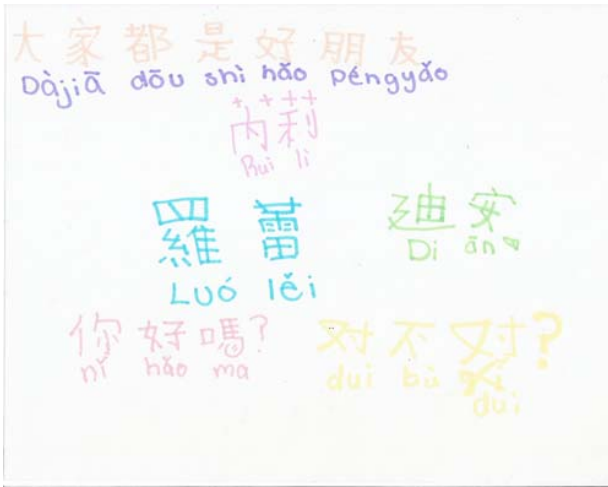 大家都是好朋友
Dàjiā dōu shì hǎo péngyǎo
芮莉
Rui li
羅蕾 廸安
Luó lěi Di ān
你好嗎? 对不对?
nǐ hǎo ma dui bù
dui